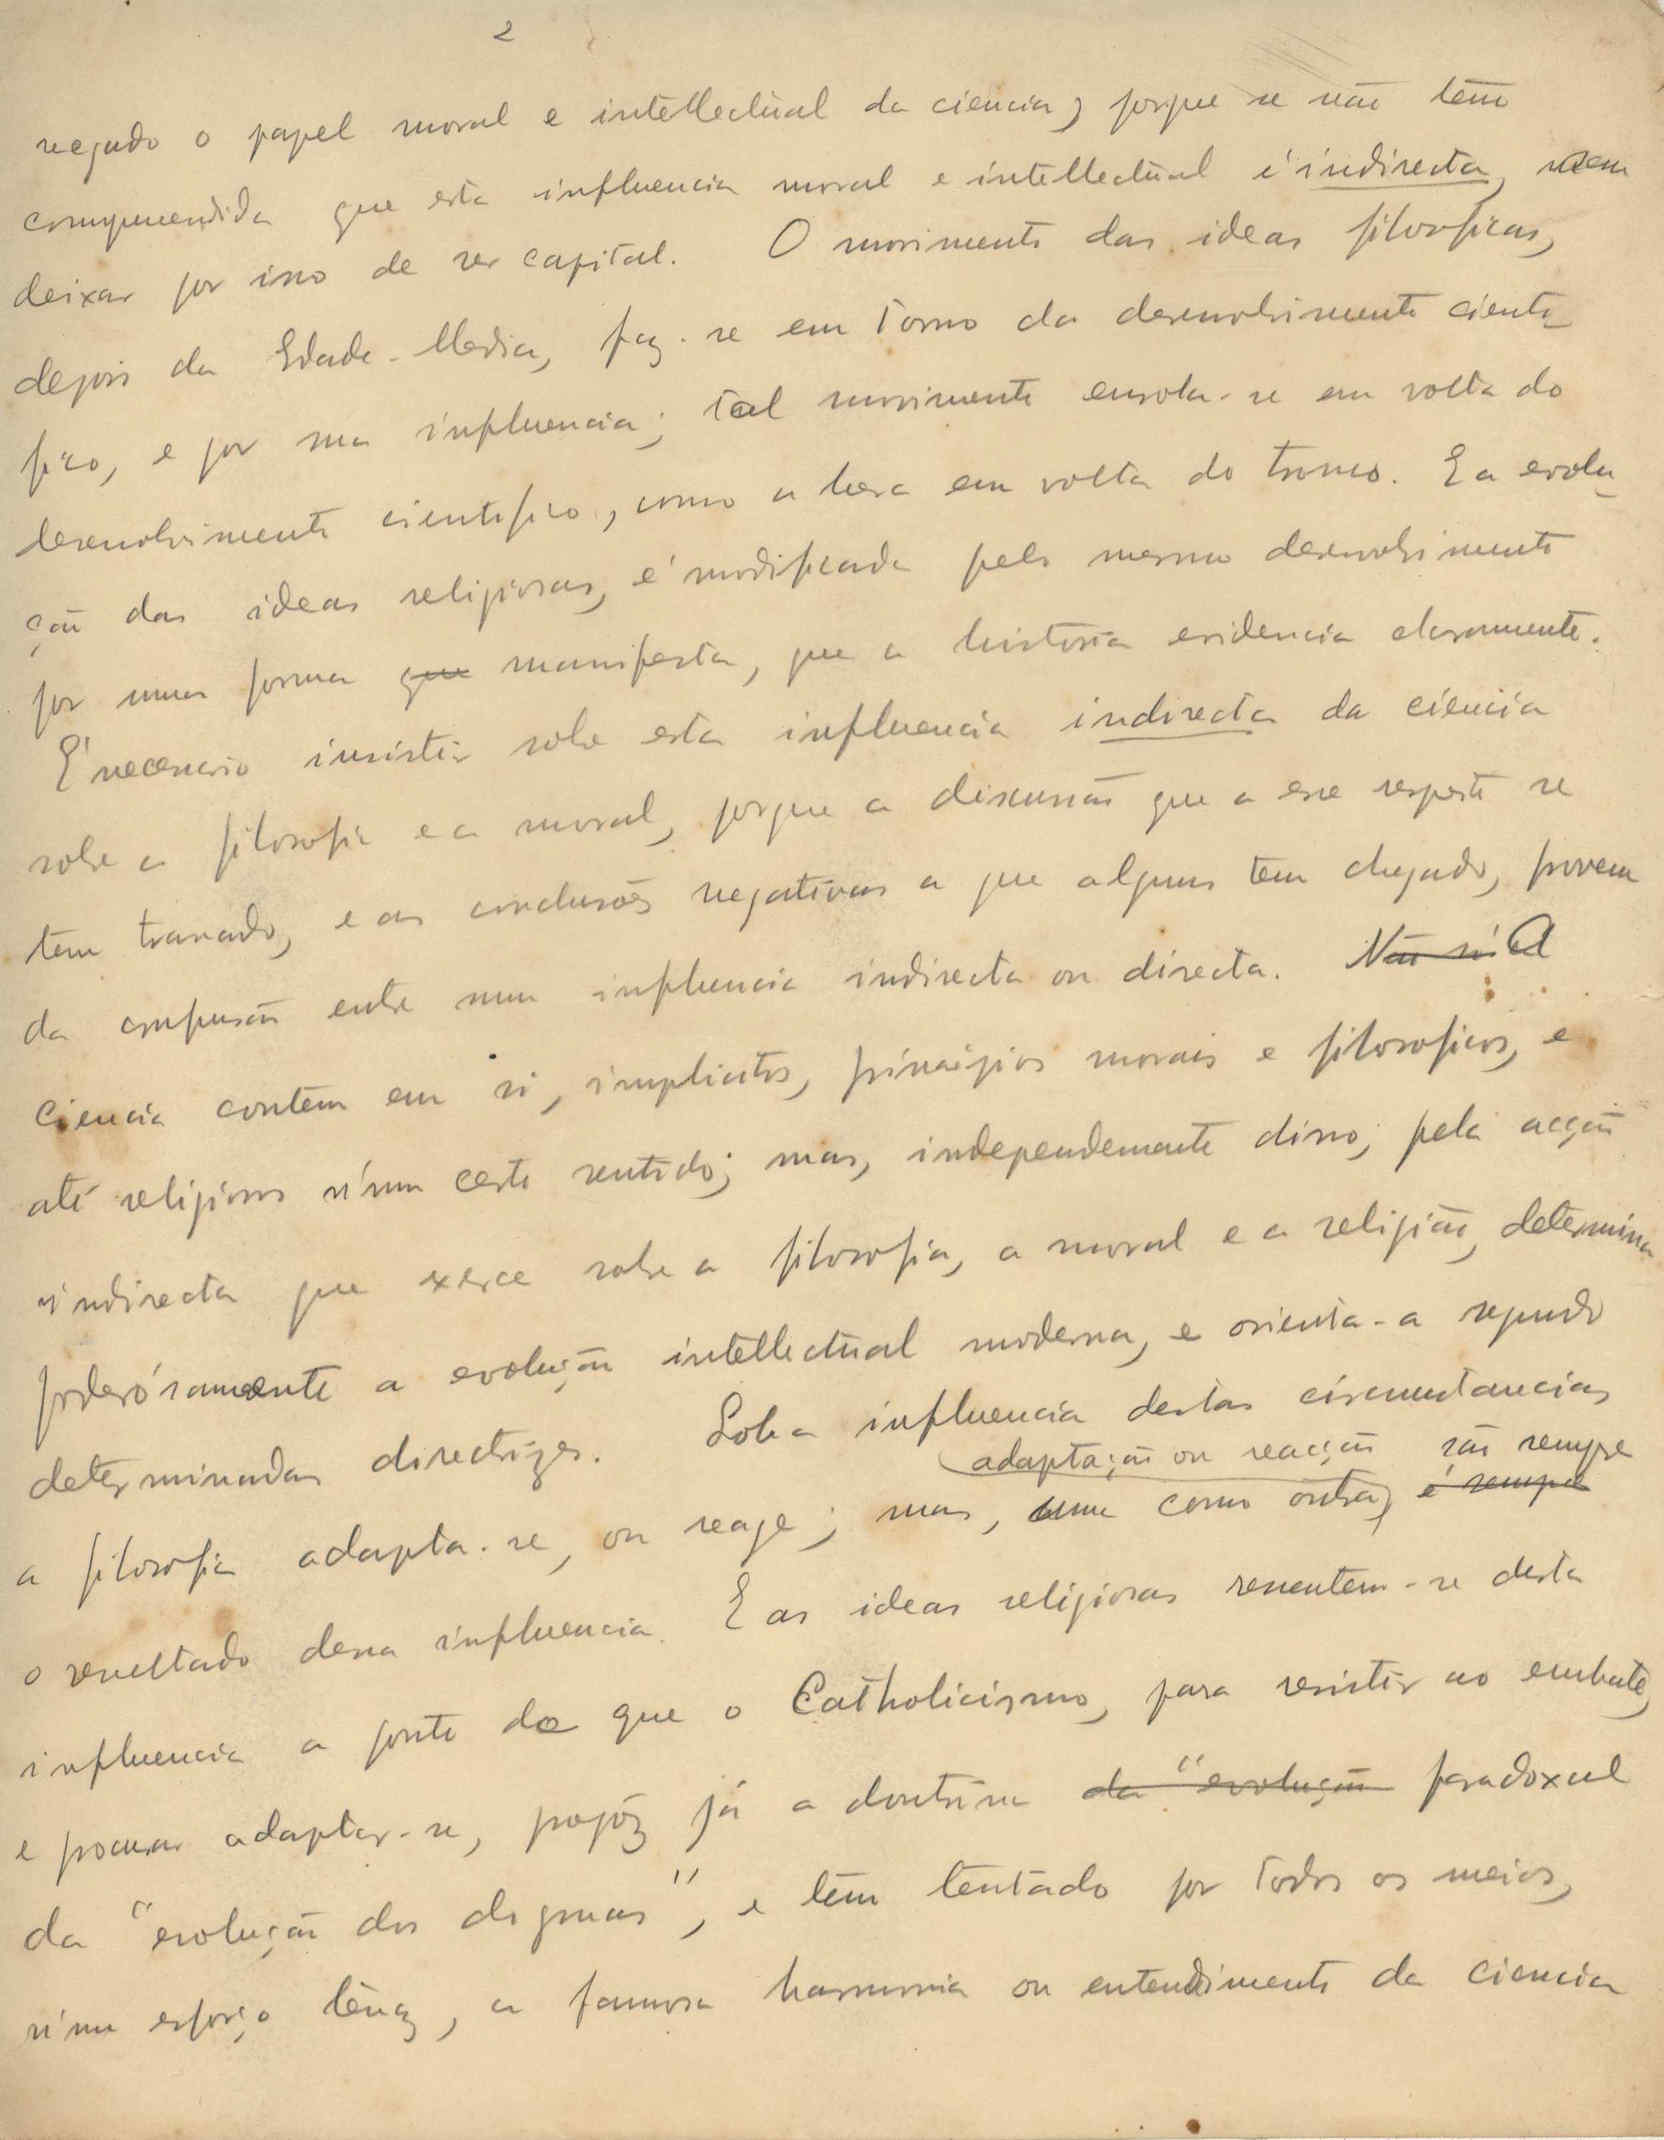 2
negado o papel moral e intellectual da ciencia, porque se não tem
comprehendida que esta influencia moral e intellectual é indirecta, sem
deixar por isso de ser capital. O movimento das ideas filosoficas,
depois da Edade-Media, faz-se em torno da desenvolvimento cienti
fico, e por sua influencia; tal movimento enrola-se em volta do
desenvolvimento cientifico, como a hera em volta do tronco. E a evolu
ção das ideas religiosas, é modificada pelo mesmo desenvolvimento
por uma forma que manifesta, que a historia evidencia claramente.
É necessario insistir sobre esta influencia indirecta da ciencia
sobre a filosofia e a moral, porque a discussão que a esse respeito se
tem travado, e as conclusões negativas a que alguns tem chegado, provem
da confusão entre uma influencia indirecta ou directa. Não só A
Ciencia contém em si, implicitos, principios morais e filosoficos, e
até religiosos n'um certo sentido; mas, independemente disso, pela acção
indirecta que exerce sobre a filosofia, a moral e a religião, determina
poderósamente a evolução intellectual moderna, e orienta-a segundo
determinadas directrizes. Sob a influencia destas circumstancias,
adaptação ou reacção são sempre
a filosofia adapta-se, ou reage; mas, uma como outra, é sempre
o resultado dessa influencia. E as ideas religiosas ressentem-se desta
influencia a ponto de que o Catholicismo, para resistir ao embate,
e procurar adaptar-se, propõz já a doutrina da "evolução paradoxal
da "evolução dos dogmas", e têm tentado por todos os meios,
n'um esforço tenaz, a famosa harmonia ou entendimento da ciencia